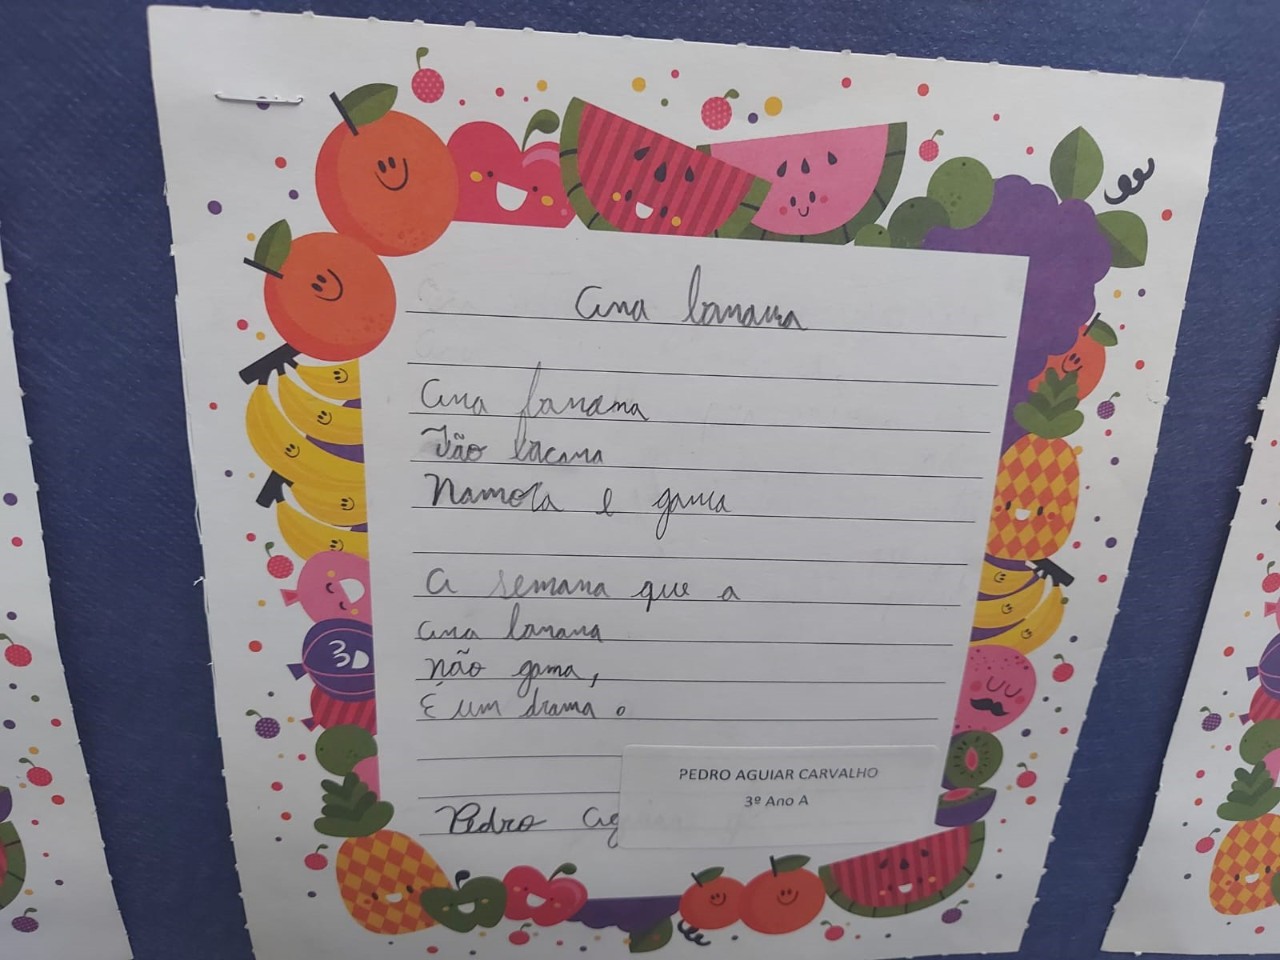 Ana banana
Ana banana
Tão bacana
Namora e gama
A semana que a
ana banana
não gama,
É um drama.
Pedro Ag
PEDRO AGUIAR CARVALHO
3º Ano A